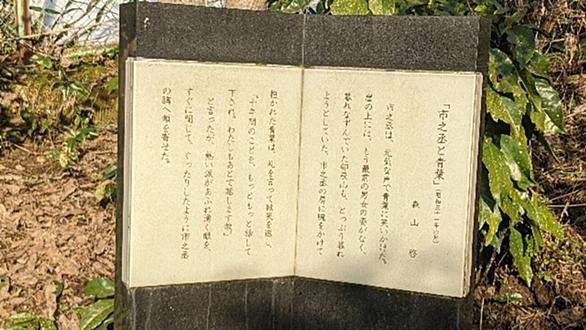 「市之丞と青葉」
森山 啓
市之丞は、元気な声で青葉に笑いかけた。
崖の上には、もう最前の男女の姿がなく、
暮れなずんでいた卯辰山も、とっぷり暮れ
ようとしていた。市之丞の肩に腕をかけて
抱かれた青葉は、礼を言って微笑を返し、
「十年間のことを、もっともっと話して
下され。わたしもあとで話します故」
と言ったが、熱い涙があふれ湧く眼を
すぐに閉じて、ぐったりしたように市之丞
の胸へ顔を寄せた。